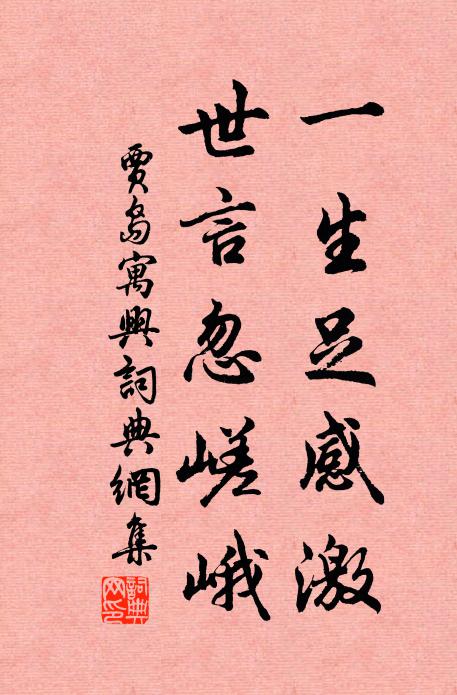 一生足感激
世言忽嵯峨
賈島寓興詞典網集
詞典
网印